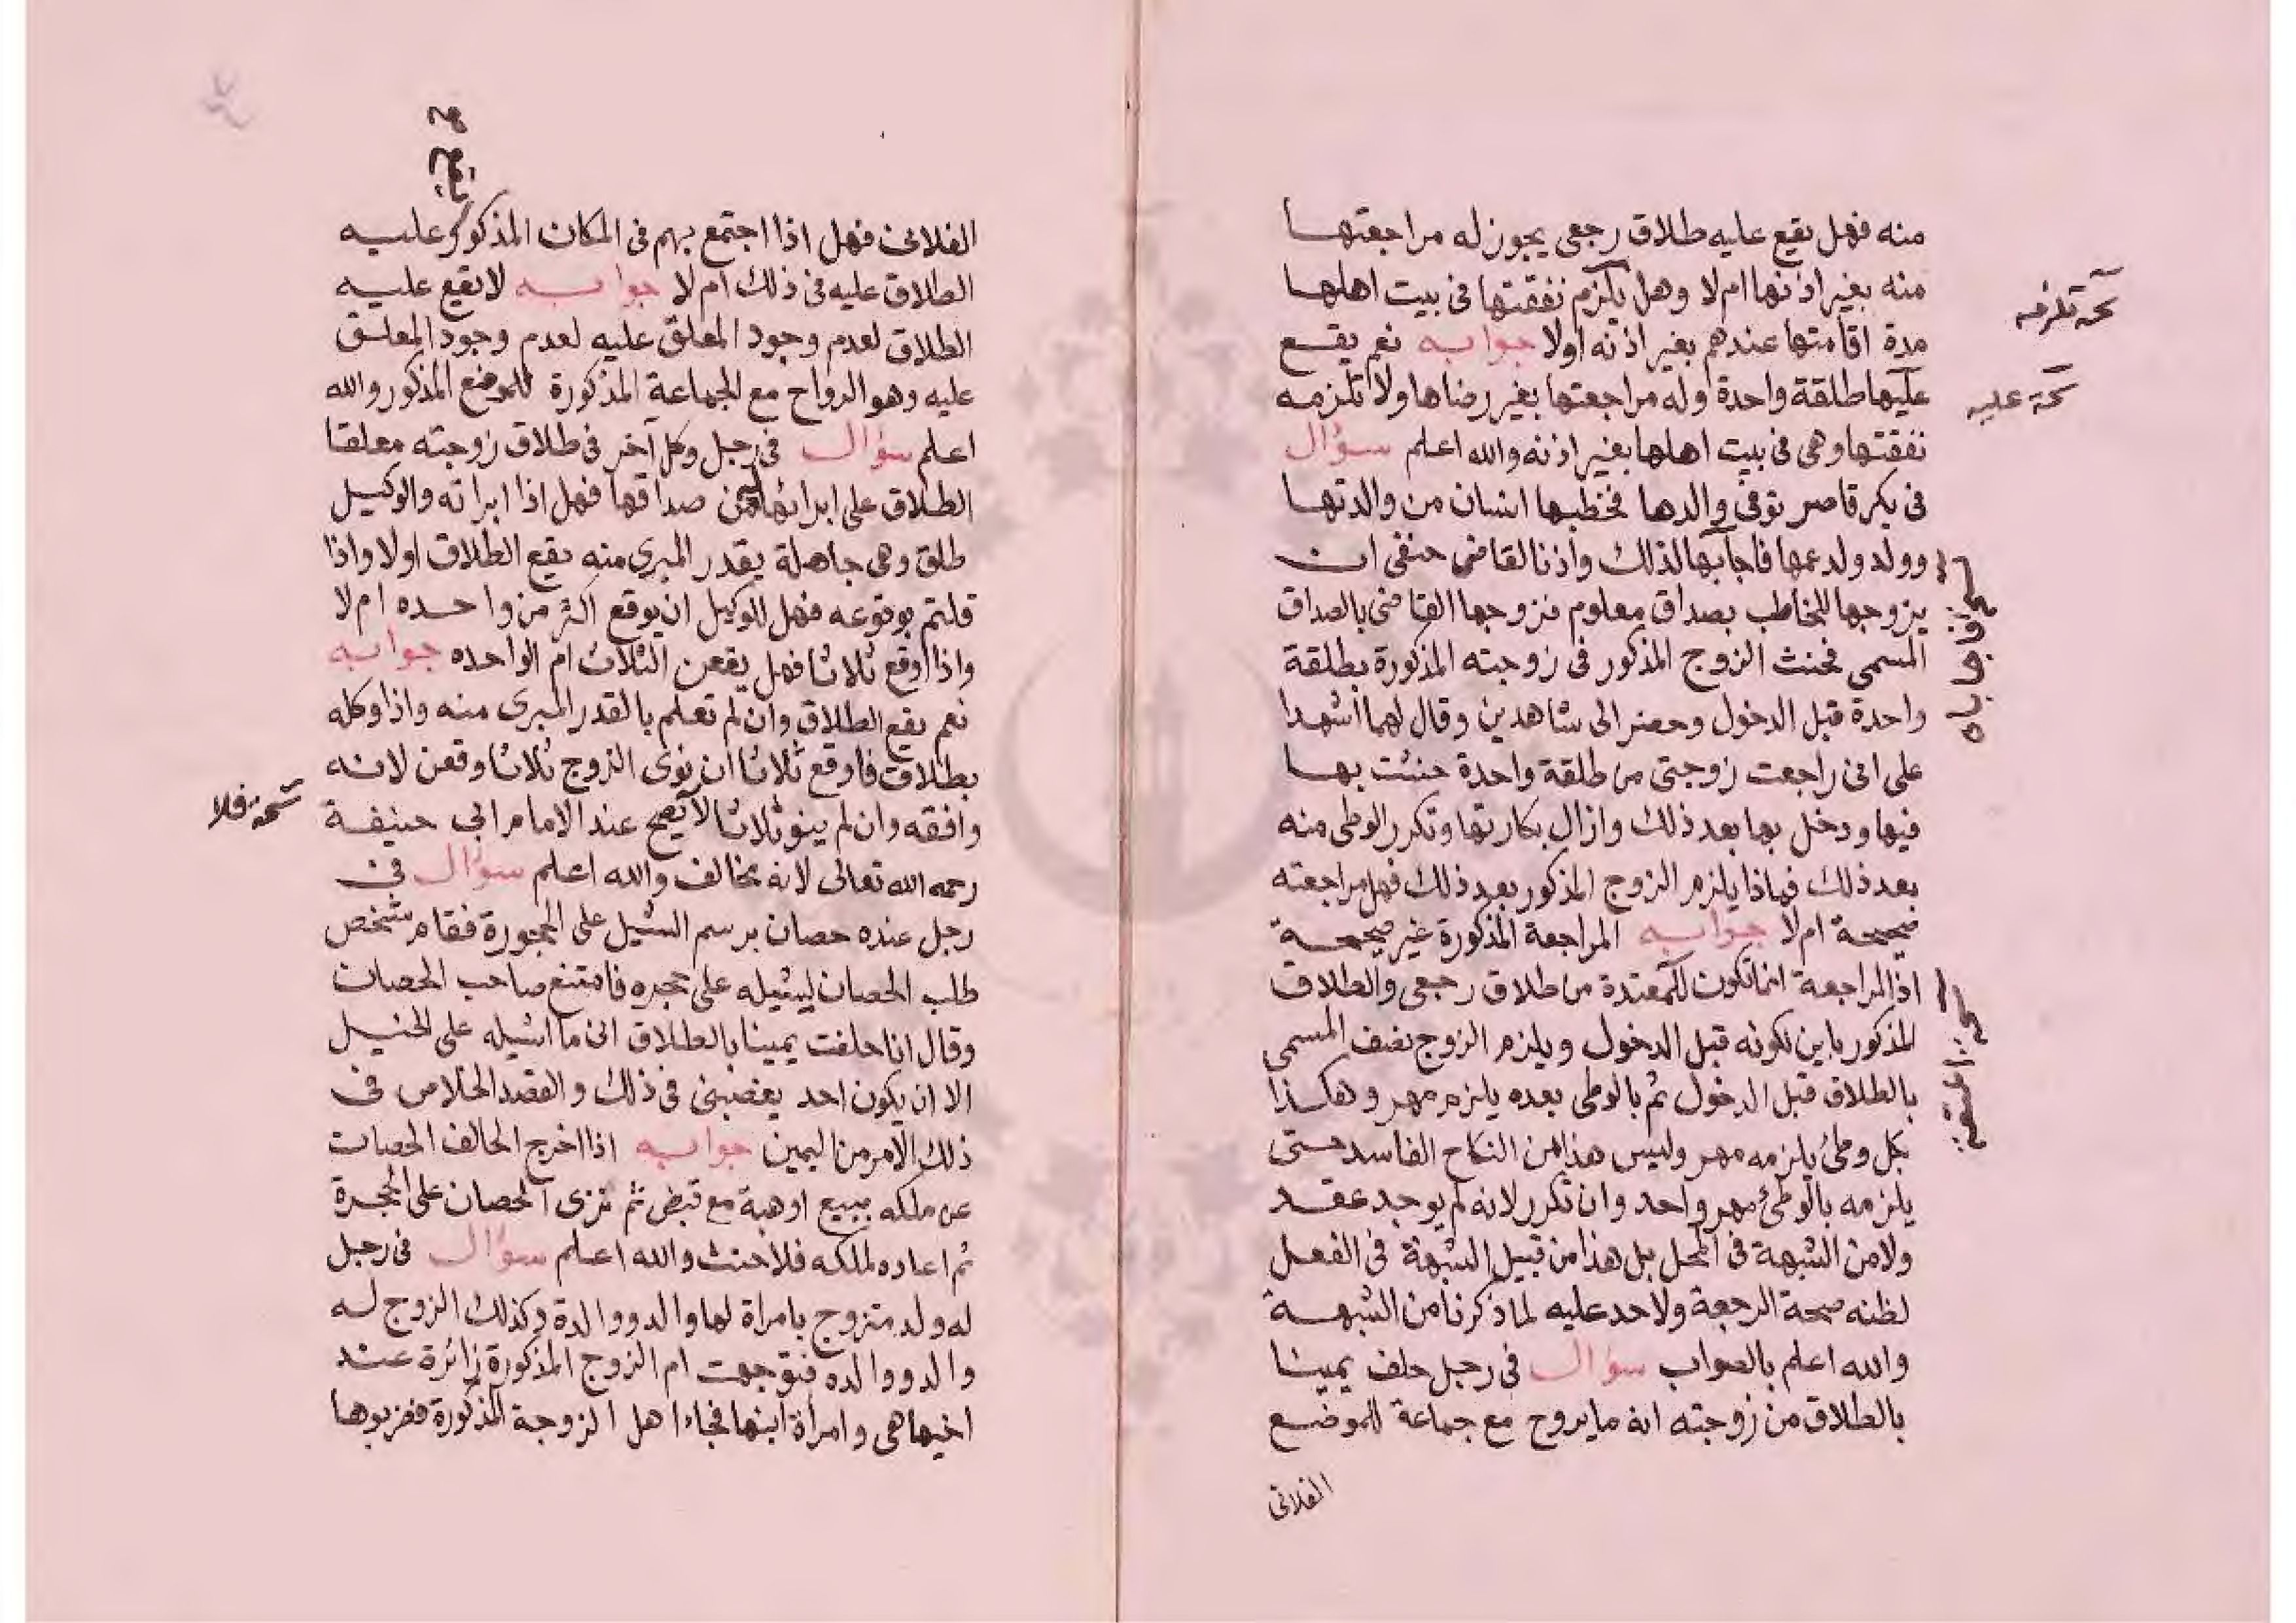 منه فهل يقع عليه طلاق رجعى يجوز له مراجعتها
منه بغير اذنها ام لا وهل يلزم نفقتها فى بيت اهلها
نسخة تلزمه
مدة اقامتها عندهم بغير اذنه اولا جوابه نعم يقع
عليها طلقة واحدة وله مراجعتها بغير رضاها ولا تلزمه
نسخة عليه
نفقتها وهى فى بيت اهلها بغير اذنه والله اعلم سؤال
فى بكر قاصر توفى والدها فخطبها انسان من والدتها
وولد ولد عمها فاجابها لذلك واذنا لقاضى حنفى ان
يزوجها للخاطب بصداق معلوم فزوجها القاضى بالصداق
المسمى فحنث الزوج المذكور فى زوجته المذكورة بطلقة
واحدة قبل الدخول وحضر الى شاهدين وقال لهما اشهدا
على انى راجعت زوجتى من طلقة واحدة حنثت بها
فيها ودخل بها بعد ذلك وازال بكارتها وتكرر الوطى منه
بعد ذلك فماذا يلزم الزوج المذكور بعد ذلك فهل مراجعته
صحيحة ام لا جوابه المراجعة المذكورة غير صحيحة
اذ المراجعة انما تكون للمعتدة من طلاق رجعى والطلاق
المذكور باين لكونه قبل الدخول ويلزم الزوج نصف المسمى
بالطلاق قبل الدخول ثم بالوطى بعده يلزم مهر وهكذا
بكل وطئ يلزمه مهر وليس هذا من النكاح الفاسد حتى
يلزمه بالوطئ مهر واحد وان تكرر لانه لم يوجد عقد
ولا من الشبهة فى المحل بل هذا من قبيل الشبهة فى الفعل
لظنه صحة الرجعة ولا حد عليه لما ذكرنا من الشبهة
والله اعلم بالصواب سؤال فى رجل حلف يمينا
بالطلاق من زوجته انه ما يروح مع جماعة للموضع
الفلانى
الفلانى فهل اذا اجتمع بهم فى المكان المذكور عليه
الطلاق عليه فى ذلك ام لا جوابه لا يقع عليه
الطلاق لعدم وجود المعلق عليه لعدم وجود المعلق
عليه وهو الرواح مع الجماعة المذكورة للموضع المذكور والله
اعلم سؤال فى رجل وكل آخر فى طلاق زوجته معلقا
الطلاق على ابرائها من صداقها فهل اذا ابراته والوكيل
طلق وهى جاهلة بقدر المبرى منه يقع الطلاق اولا واذا
قلتم بوقوعه فهل للوكيل ان يوقع اكثر من واحده ام لا
واذا اوقع ثلاثا فهل يقعن الثلاث ام الواحده جوابه
نعم يقع الطلاق وان لم تعلم بالقدر المبرى منه واذا وكله
بطلاق فاوقع ثلاثا ان نوى الزوج ثلاثا وقعن لانه
وافقه وان لم ينو ثلاثا لا يصح عند الامام ابى حنيفة
نسخة فلا
رحمه الله تعالى لانه مخالف والله اعلم سؤال فى
رجل عنده حصان برسم الشيل على الحجورة فقام شخص
طلب الحصان ليشيله على حجره فامتنع صاحب الحصان
وقال انا حلفت يمينا بالطلاق انى ما اشيله على الخيل
الا ان يكون احد يغصبنى فى ذلك والقصد الخلاص فى
ذلك الامر من اليمين جوابه اذا اخرج الحالف الحصان
عن ملكه ببيع او هبة مع قبض ثم نزى الحصان على الحجرة
ثم اعاده لملكه فلا حنث والله اعلم سؤال فى رجل
له ولد متزوج بامراة لها والد ووالدة وكذلك الزوج له
والد ووالده فتوجهت ام الزوج المذكورة زائرة عند
اخيها هى وامرأة ابنها فجاء اهل الزوجة المذكورة فضربوها